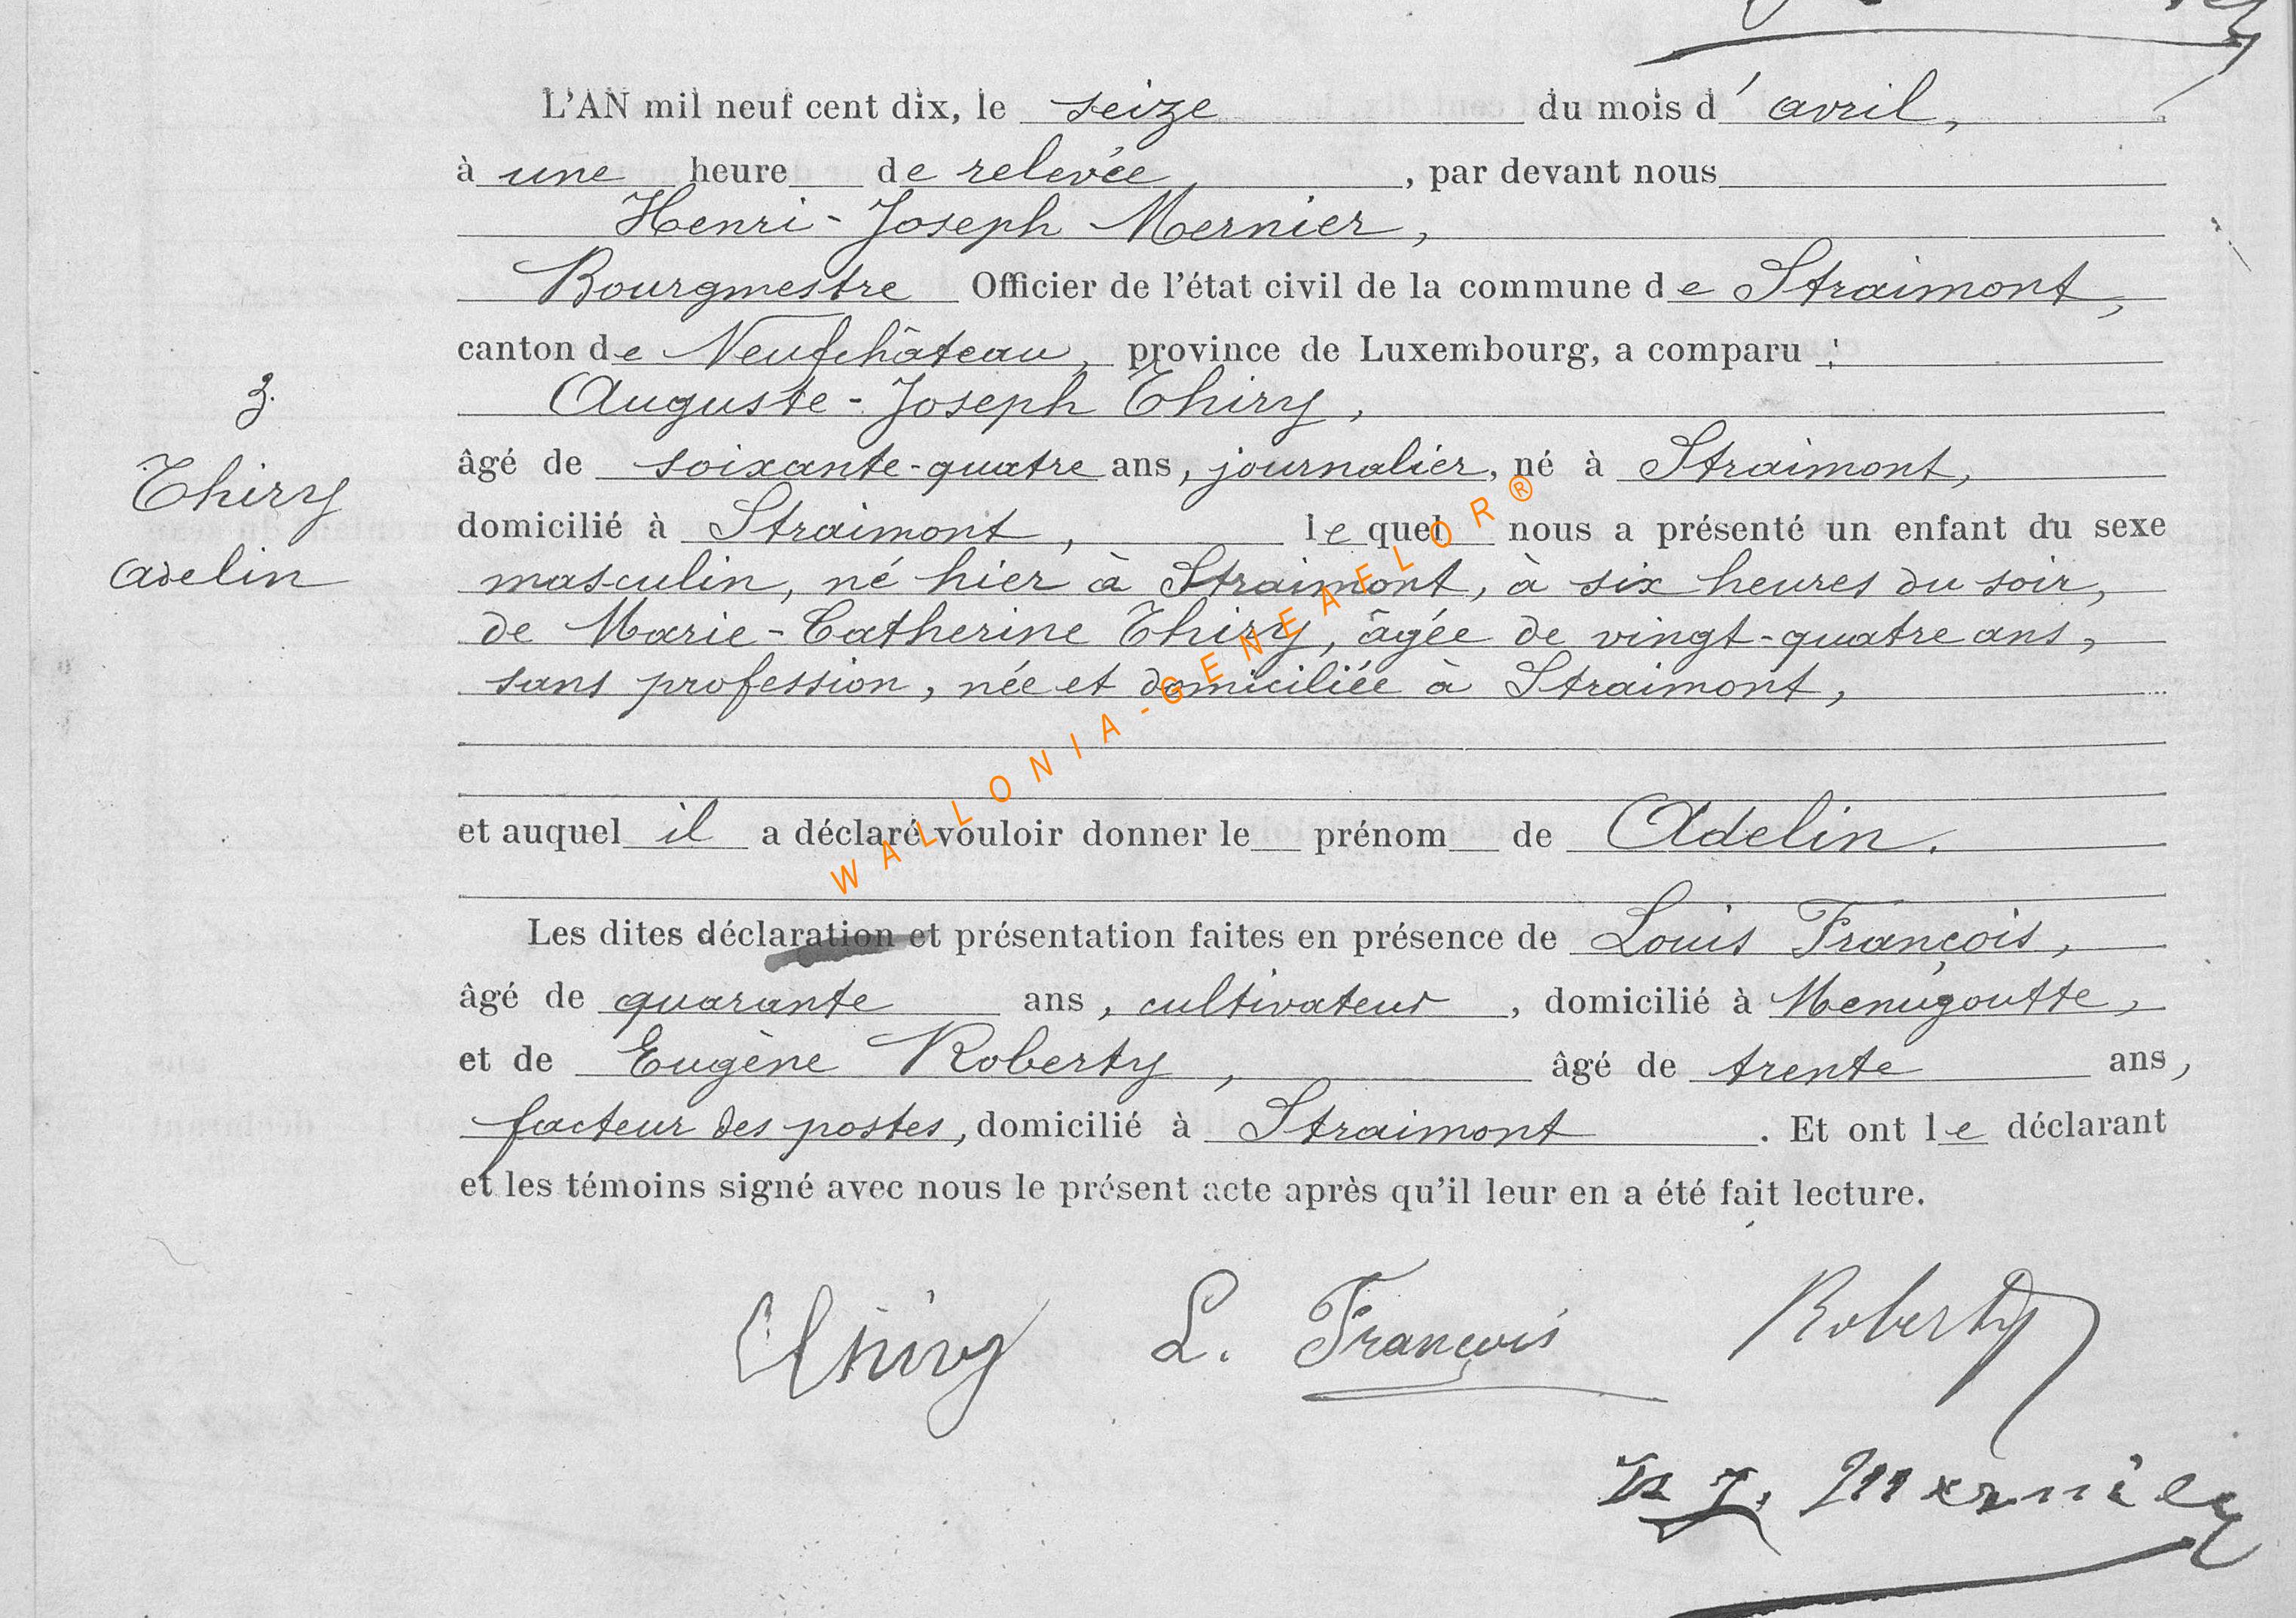 L'AN mil neuf cent dix, le seize du mois d'avril,
à une heure de relevée, par devant nous
Henri-Joseph Mernier,
Bourgmestre Officier de l'état civil de la commune de Straimont,
canton de Neufchâteau, province de Luxembourg, a comparu :
Auguste-Joseph Thiry,
3.
Thiry
Adelin
âgé de soixante-quatre ans, journalier, né à Straimont,
domicilié à Straimont, lequel nous a présenté un enfant du sexe
masculin, né hier à Straimont, à six heures du soir,
de Marie-Catherine Thiry, âgée de vingt-quatre ans,
sans profession, née et domiciliée à Straimont,
WALLONIA-GENEAELOR®
et auquel il a déclaré vouloir donner le prénom de Adelin.
Les dites déclaration et présentation faites en présence de Louis François,
âgé de quarante ans, cultivateur, domicilié à Menugoutte,
et de Eugène Roberty, âgé de trente ans,
facteur des postes, domicilié à Straimont. Et ont le déclarant
et les témoins signé avec nous le présent acte après qu'il leur en a été fait lecture.
Thiry L. François Roberty
H J. Mernier